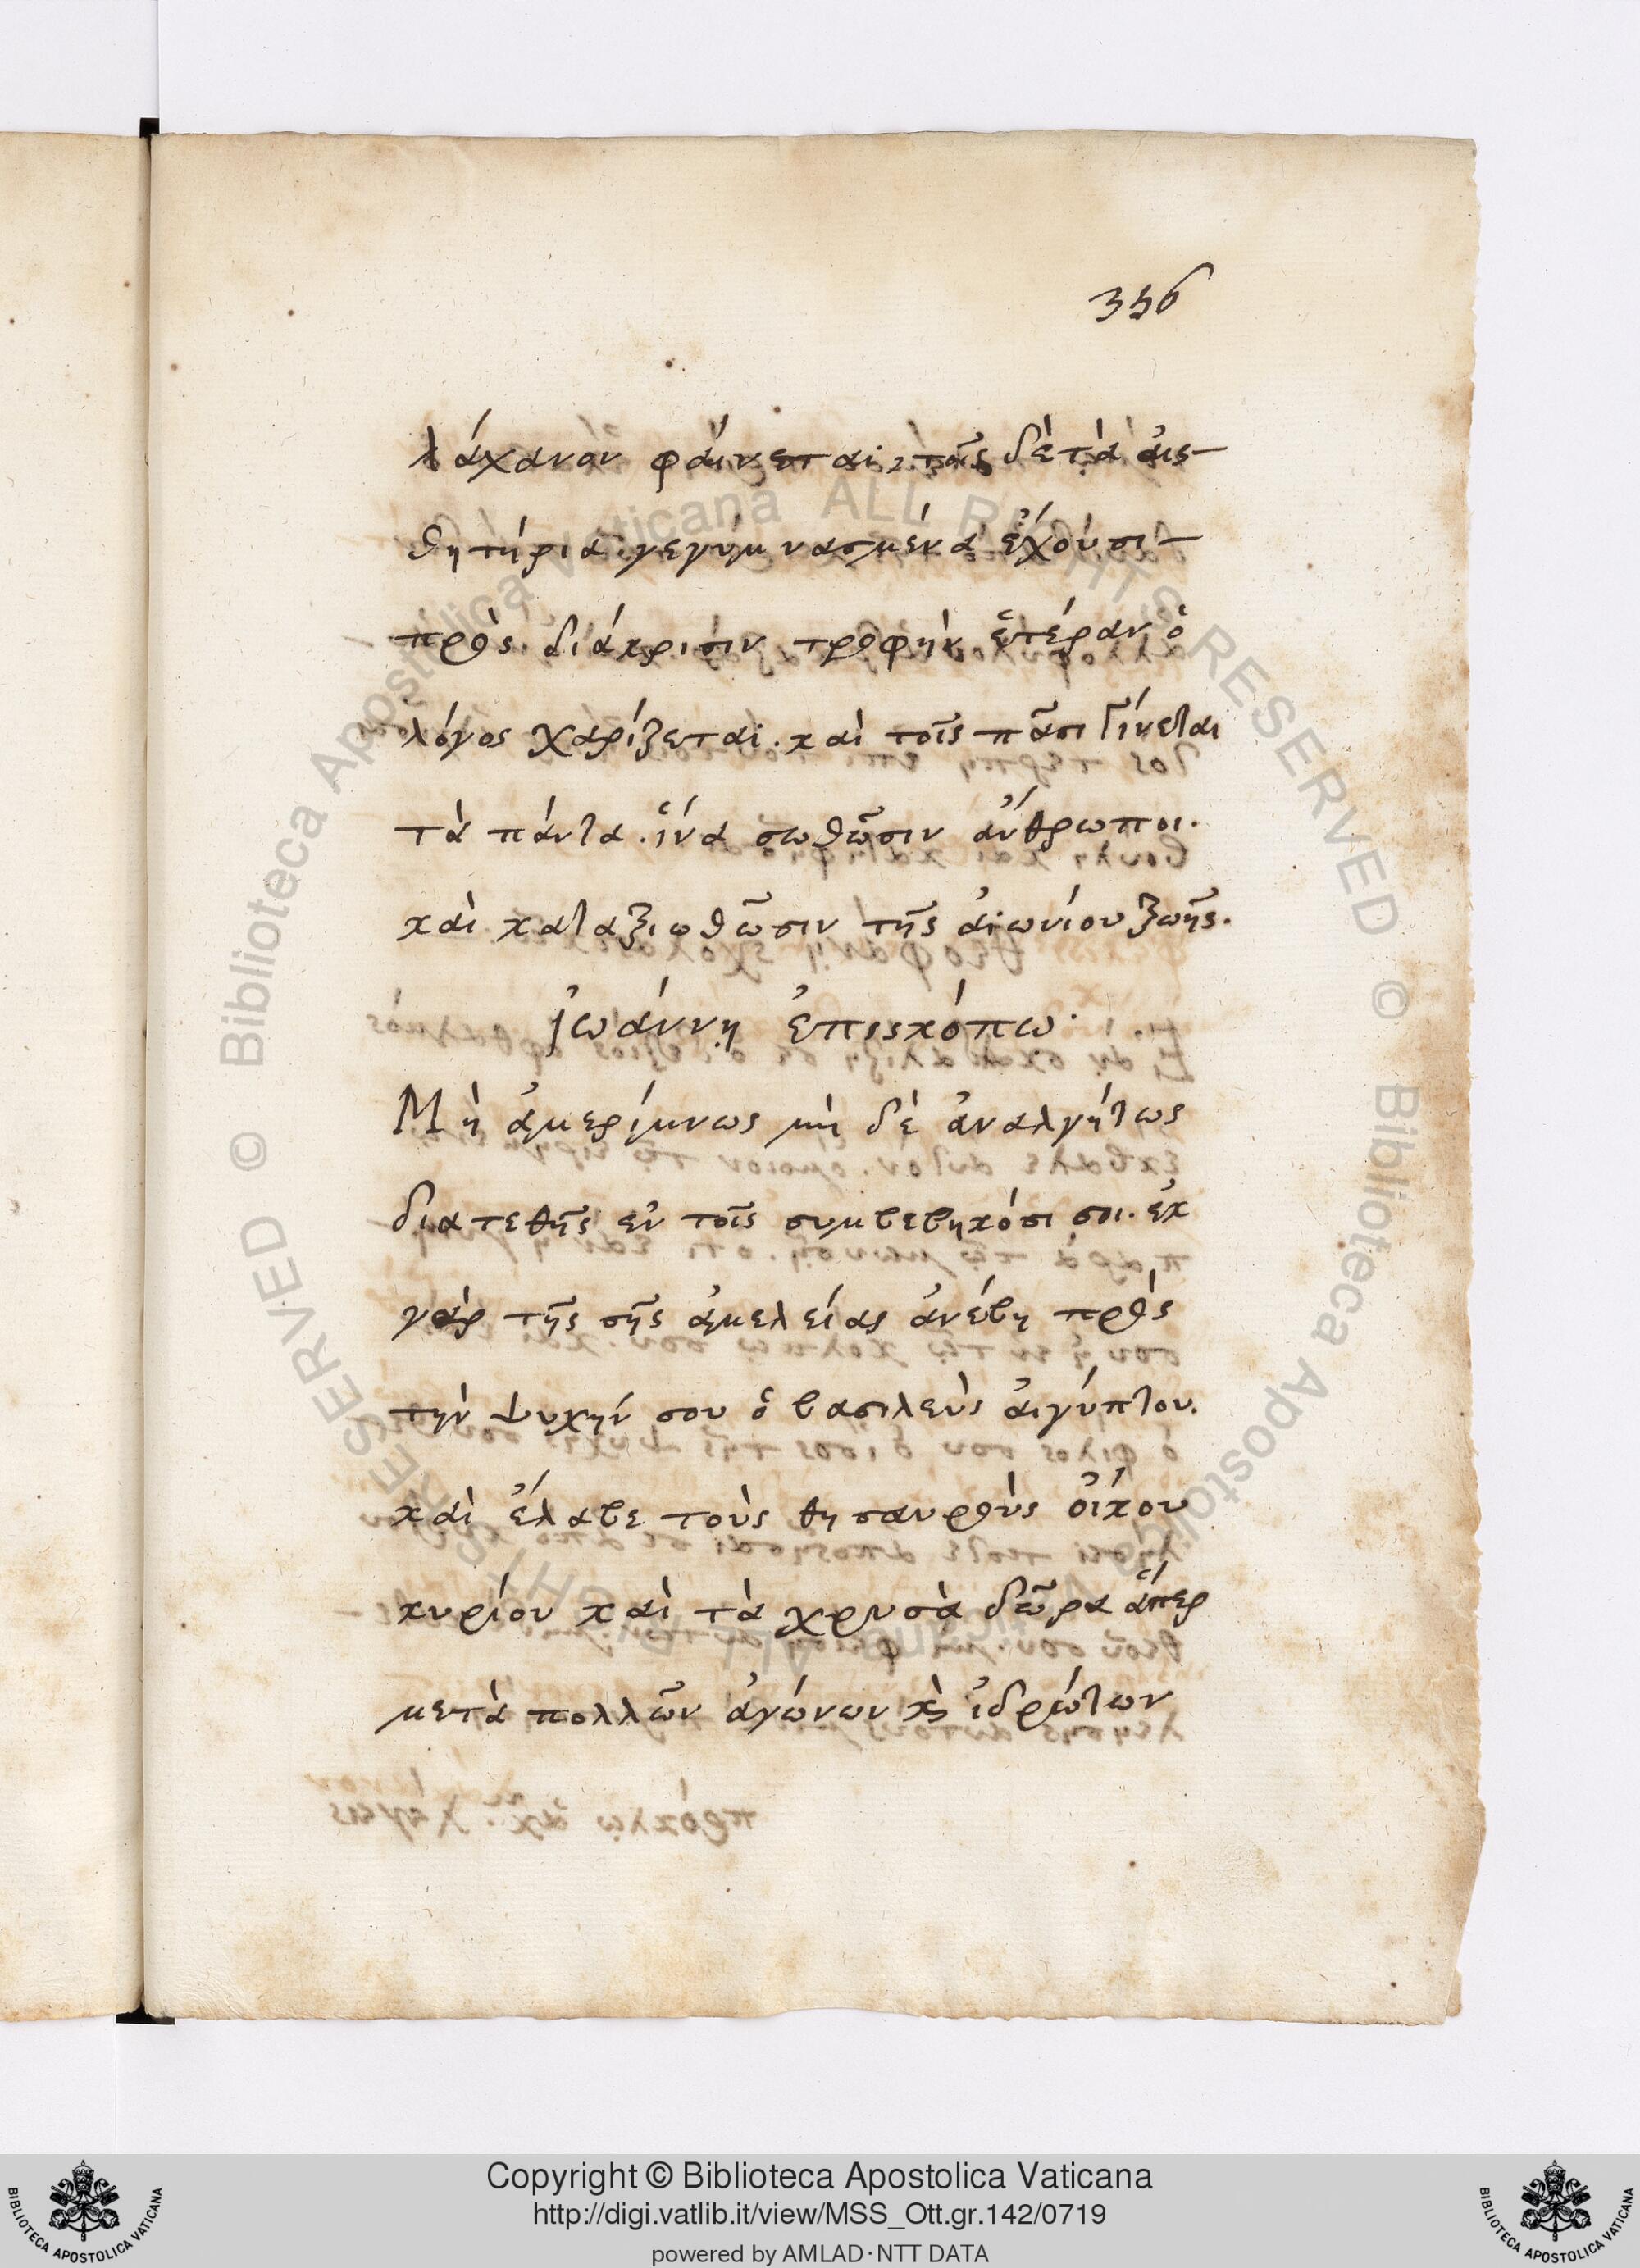 356
λάχανον φάινεται, τοῖς δὲ τὰ ἀις-
θητήρια γεγυμνασμένα ἔχουσι-
πρὸς διάκρισιν τροφὴν ἑτέραν ὁ
λόγος χαρίζεται. καὶ τοῖς πᾶσι γίνεται
τὰ πάντα. ἵνα σωθῶσιν ἄνθρωποι.
καὶ καταξιωθῶσιν τῆς ἀιωνίου ζωῆς.
ἰωάννη ἐπισκόπω.
Μὴ ἀμερίμνως μὴ δὲ ἀναλγήτως
διατεθῆς ἐν τοῖς συμβεβηκόσι σοι. ἐκ
γὰρ τῆς σῆς ἀμελείας ἀνέβη πρὸς
τὴν ψυχήν σου ὁ βασιλεὺς ἀιγύπτου.
καὶ ἔλαβε τοὺς θησαυροὺς ὄικου
κυρίου καὶ τὰ χρυσὰ δῶρα ἅπερ
μετὰ πολλῶν ἀγώνων κ̀ ἰδρώτων
© Biblioteca Apostolica Vaticana ALL RIGHTS RESERVED
© Biblioteca Apostolica Vaticana ALL RIGHTS RESERVED
Copyright © Biblioteca Apostolica Vaticana
http://digi.vatlib.it/view/MSS_Ott.gr.142/0719
powered by AMLAD·NTT DATA
BIBLIOTECA APOSTOLICA VATICANA
BIBLIOTECA APOSTOLICA VATICANA